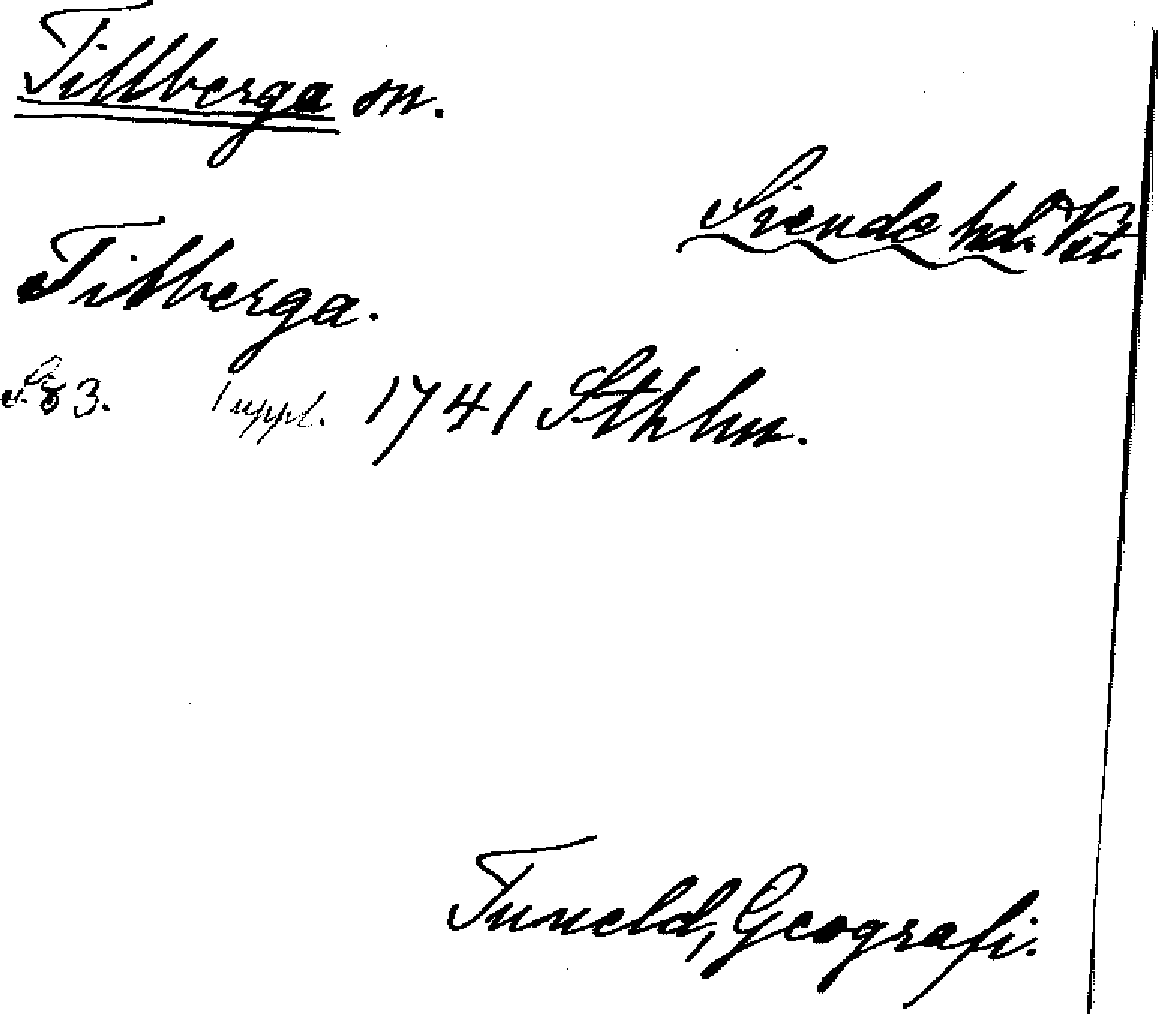 Tillberga sn.
Siende hd. Vst
Tilberga.
S. 83. 1 uppl. 1741 Sthlm.
Tuneld, Geografi.